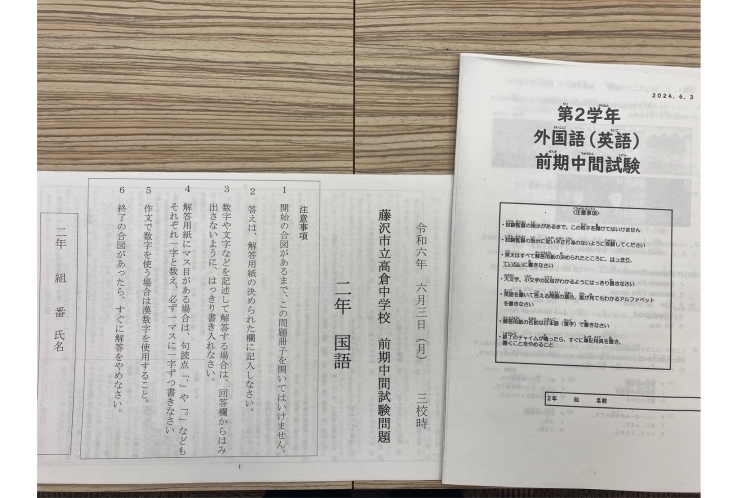 令和六年 六月三日（月） 三校時
藤沢市立高倉中学校 前期中間試験問題
二年 国語
注意事項
1 開始の合図があるまで、この問題冊子を開いてはいけません。
2 答えは、解答用紙の決められた欄に記入しなさい。
3 数字や文字などを記述して解答する場合は、回答欄からはみ
出さないように、はっきり書き入れなさい。
4 解答用紙にマス目がある場合は、句読点「、」や「。」なども
それぞれ一字と数え、必ず一マスに一字ずつ書きなさい
5 作文で数字を使う場合は漢数字を使用すること。
6 終了の合図があったら、すぐに解答をやめなさい。
二年 組 番 氏名
1
2024.6.3
第2学年
外国語（英語）
前期中間試験
〈注意事項〉
・試験監督の指示があるまで、この冊子を開けてはいけません
・試験監督の指示に従い不正行為のないように受験してください
・答えはすべて解答用紙の決められたところに、はっきり、
ていねいに書きなさい
・大文字、小文字の区別がわかるようにはっきり書きなさい
・英語を書いて答える問題の場合、誰が見てもわかるアルファベット
を書きなさい
・解答用紙の名前は日本語（漢字）で書きなさい
・終了のチャイムが鳴ったら、すぐに筆記用具を置き、
書くことをやめること
2年 組 名前